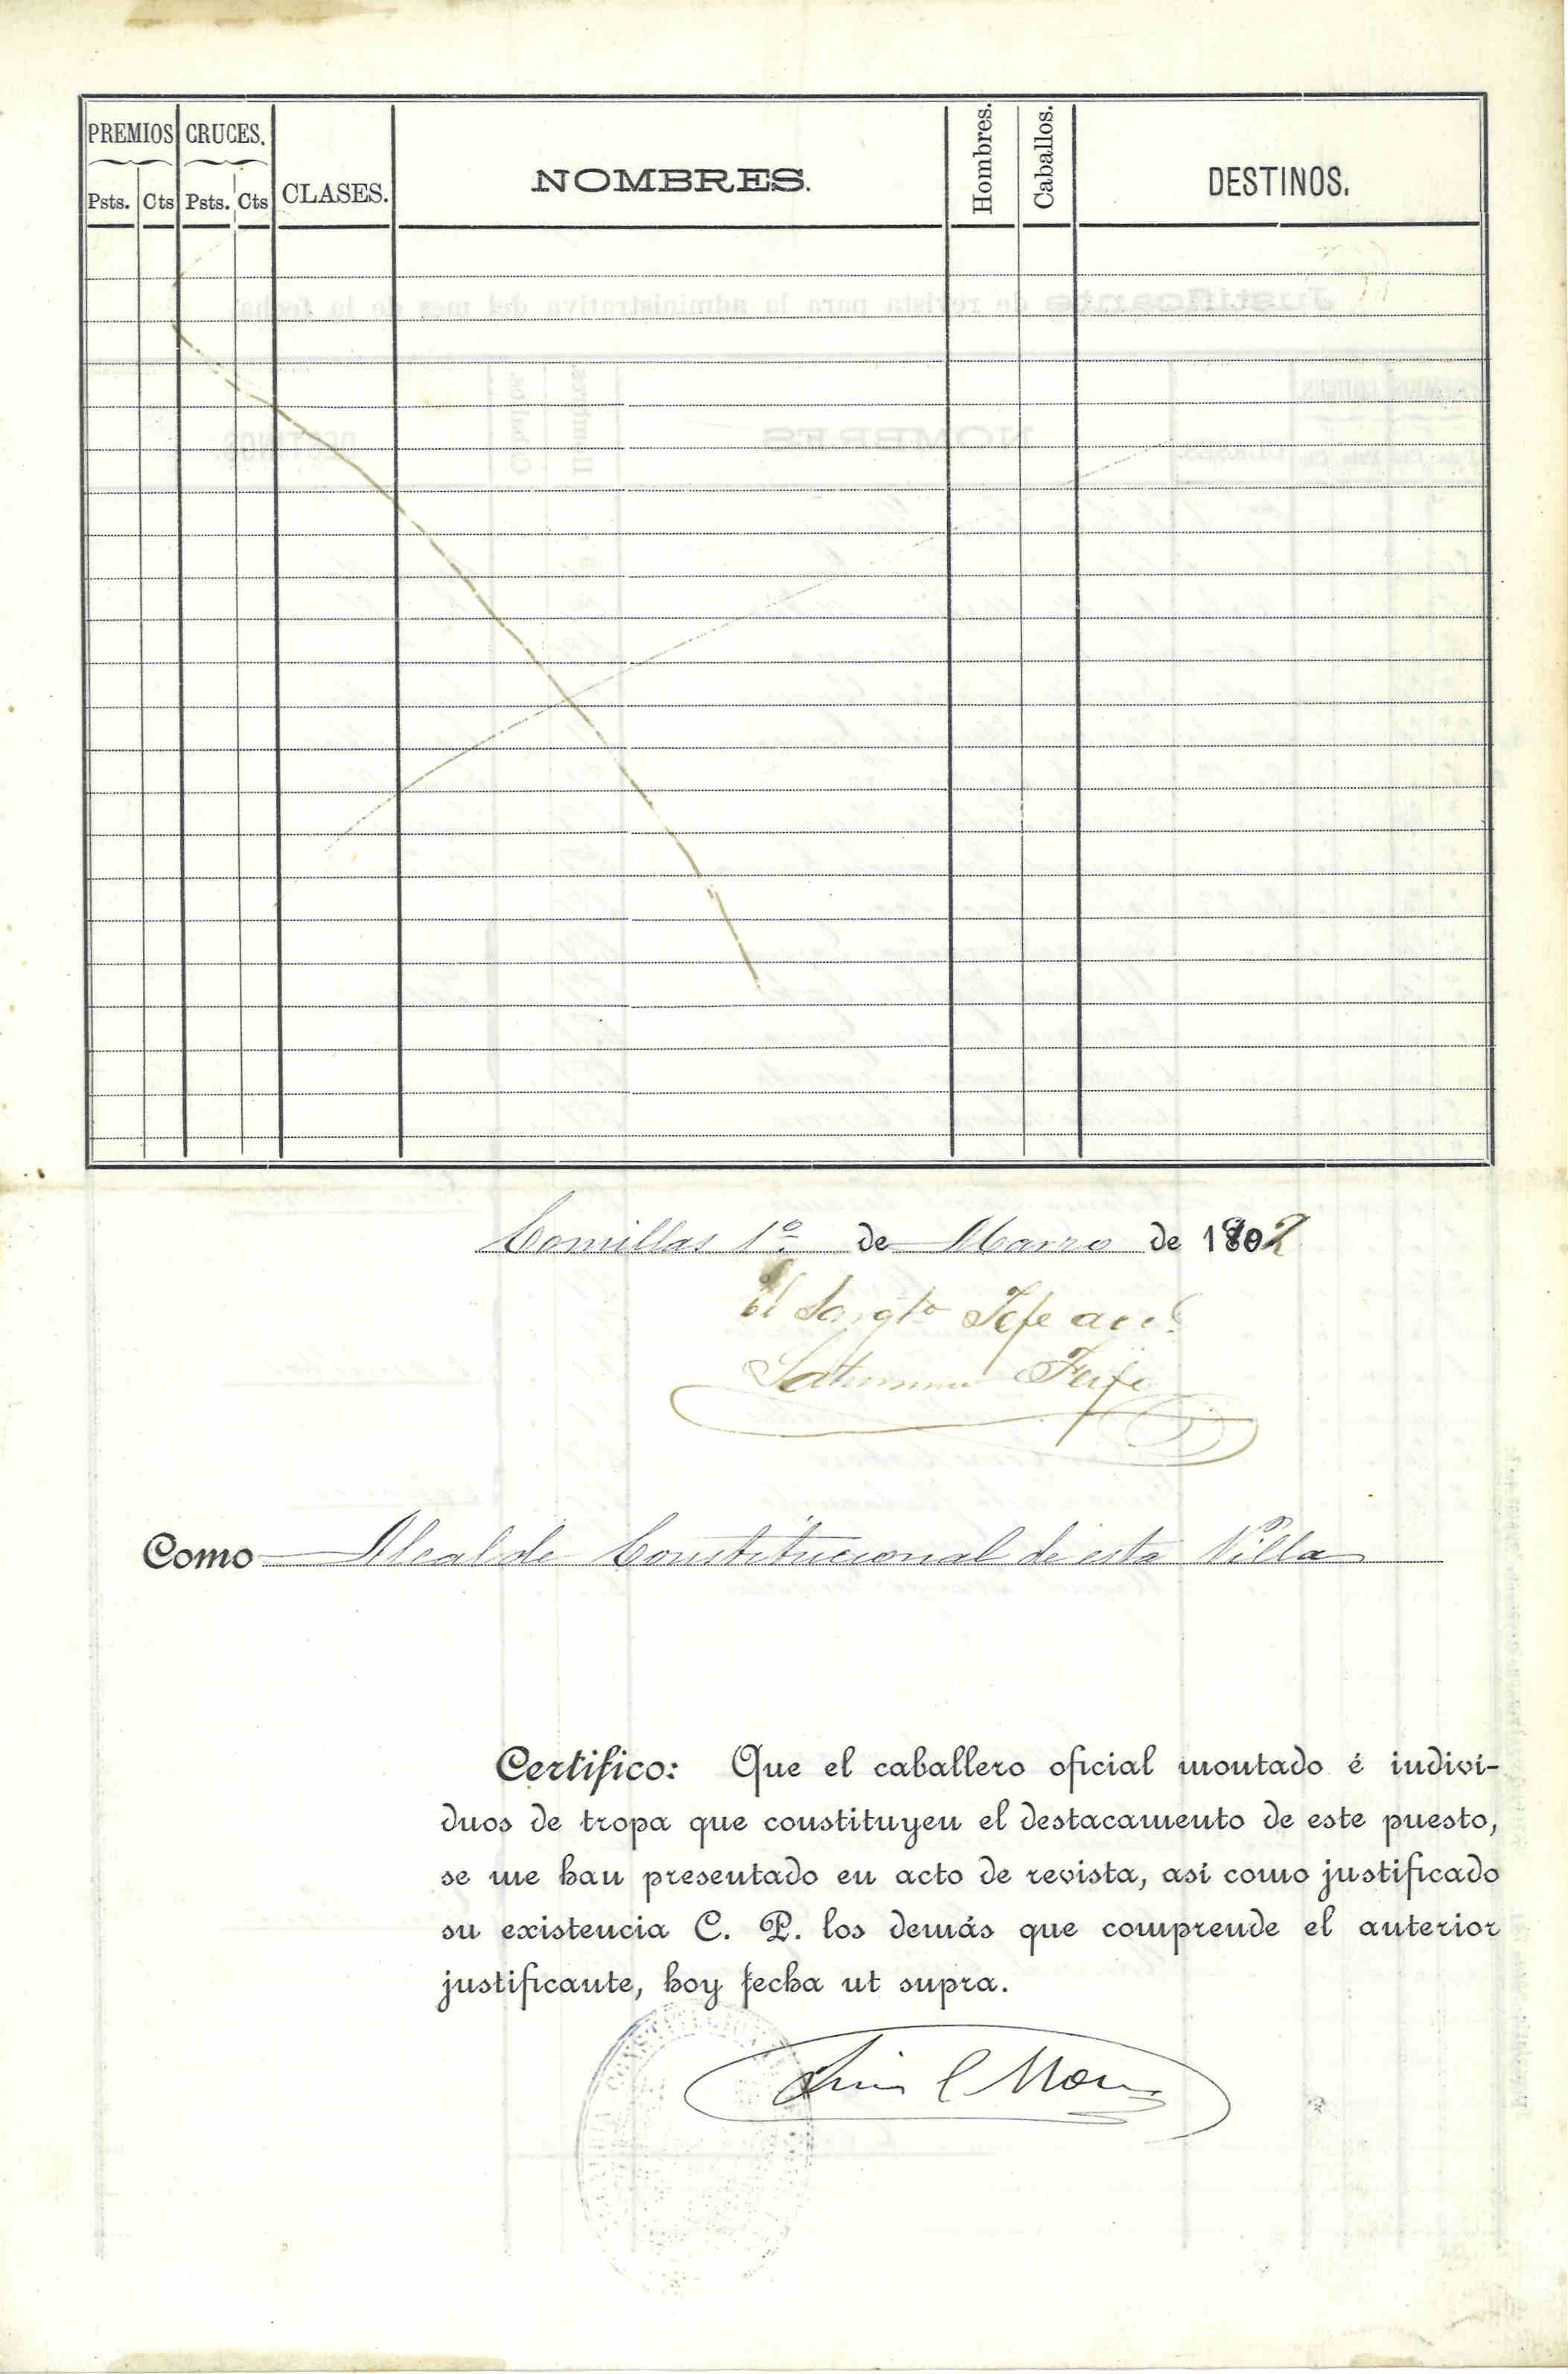 PREMIOS CRUCES. CLASES. NOMBRES. Hombres. Caballos. DESTINOS.
Psts. Cts Psts. Cts
Comillas 1º de Marzo de 1902
El Sargto Jefe accl
Saturnino
Como Alcalde Constitucional de esta Villa
Certifico: Que el caballero oficial montado é indiví-
duos de tropa que constituyen el destacamento de este puesto,
se me han presentado en acto de revista, así como justificado
su existencia C. P. los demás que comprende el anterior
justificante, hoy fecha ut supra.